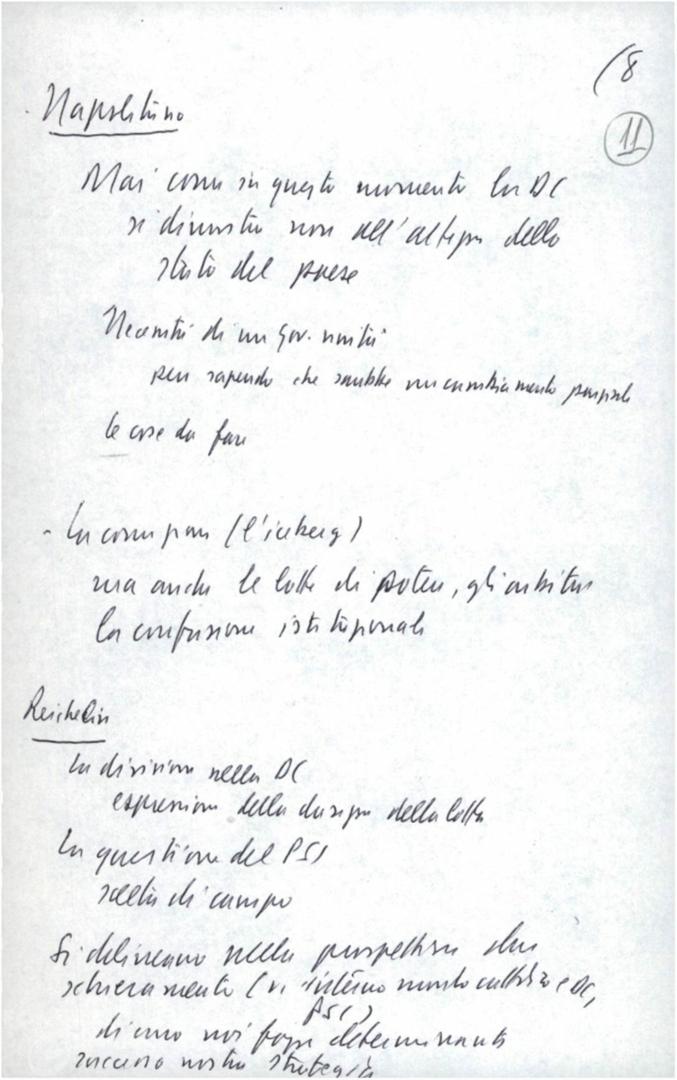 (8
11
- Napolitano
Mai come in questo momento la DC
si dimostra non all'altezza dello
stato del paese
Necessità di un gov. unità
pur sapendo che sarebbe un cambiamento
le cose da fare
- La corruzione (l'iceberg)
ma anche le lotte di potere, gli arbitri
la confusione istituzionale
Reichlin
La divisione nella DC
espressione della durezza della lotta
La questione del PSI
scelta di campo
Si delineano nella prospettiva due
schieramenti (vi interno mondo cattolico e DC,
PSI)
noi forza determinante
successo nostra strategia